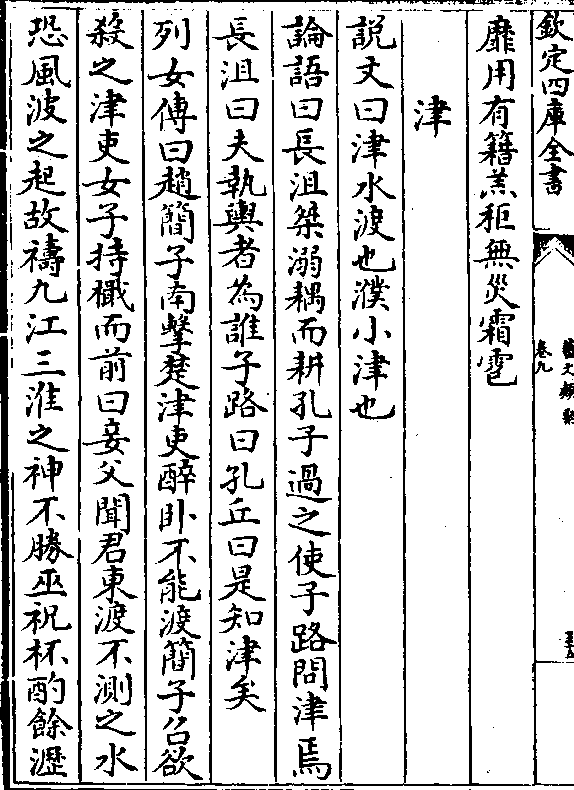 欽定四庫全書
藝文類聚
卷九
靡用有籍羔秬無災霜雹
津
說文曰津水渡也濮小津也
論語曰長沮桀溺耦而耕孔子過之使子路問津焉
長沮曰夫執輿者為誰子路曰孔丘曰是知津矣
列女傳曰趙簡子南擊楚津吏醉卧不能渡簡子召欲
殺之津吏女子持檝而前曰妾父聞君東渡不測之水
恐風波之起故禱九江三淮之神不勝巫祝杯酌餘瀝